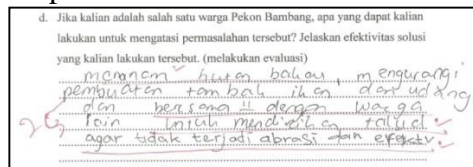 d. Jika kalian adalah salah satu warga Pekon Bambang, apa yang dapat kalian
lakukan untuk mengatasi permasalahan tersebut? Jelaskan efektivitas solusi
yang kalian lakukan tersebut. (melakukan evaluasi)
menanam hutan bakau, mengurangi
pembuatan tambak ikan dan udang
dan bersama" dengan warga
lain untuk mendirikan talud
agar tidak terjadi abrasi dan efektiv.